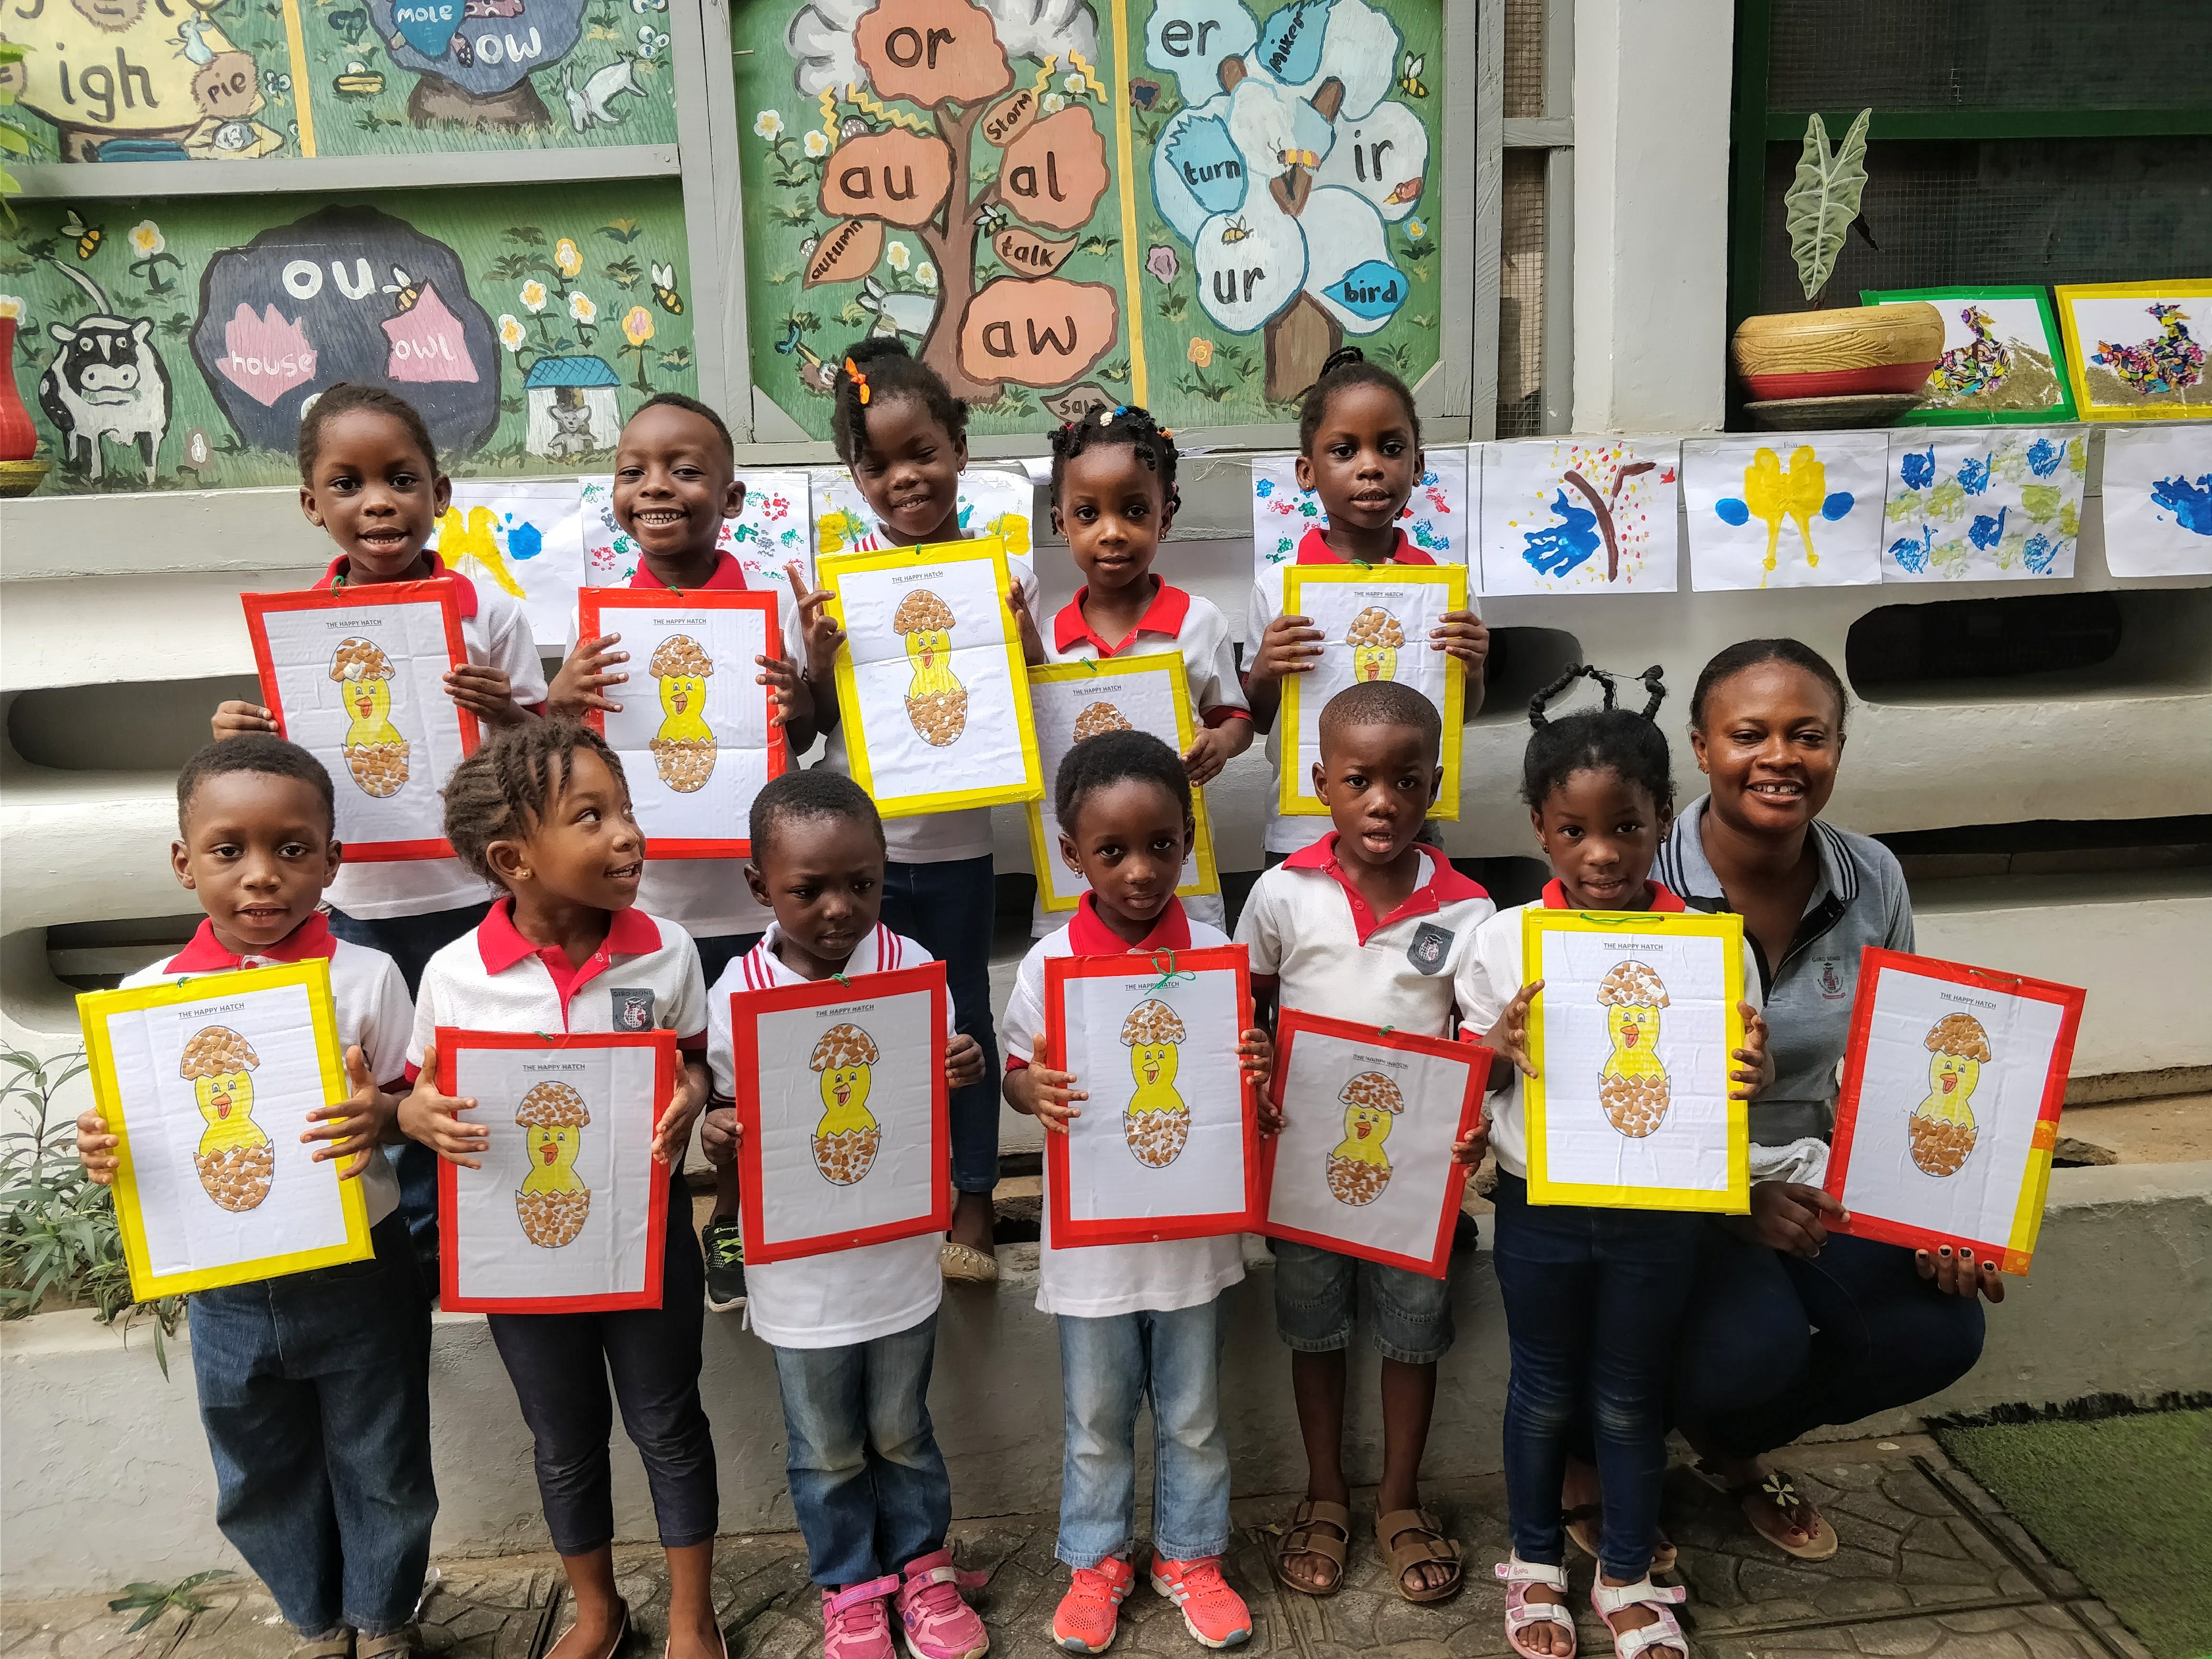 igh
pie
MOLE
ow
ou
house
owl
or
Storm
au
al
autumn
talk
aw
er
Mixer
turn
ir
ur
bird
THE HAPPY HATCH
THE HAPPY HATCH
THE HAPPY HATCH
THE HAPPY HATCH
THE HAPPY HATCH
THE HAPPY HATCH
THE HAPPY HATCH
THE HAPPY HATCH
THE HAPPY HATCH
THE HAPPY HATCH
THE HAPPY HATCH
THE HAPPY HATCH